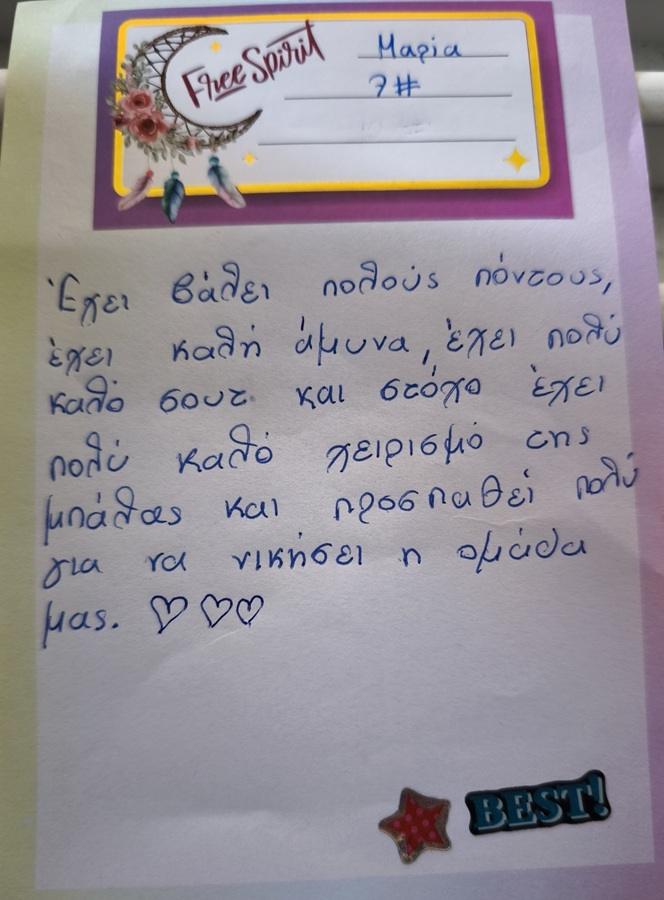 Free Spirit
Μαρία
7#
Έχει βάλει πολούς πόντους,
έχει καλή άμυνα, έχει πολύ
καλό σουτ και στόχο έχει
πολύ καλό χειρισμό της
μπάλας και προσπαθεί πολύ
για να νικήσει η ομάδα
μας. ♡♡♡
BEST!